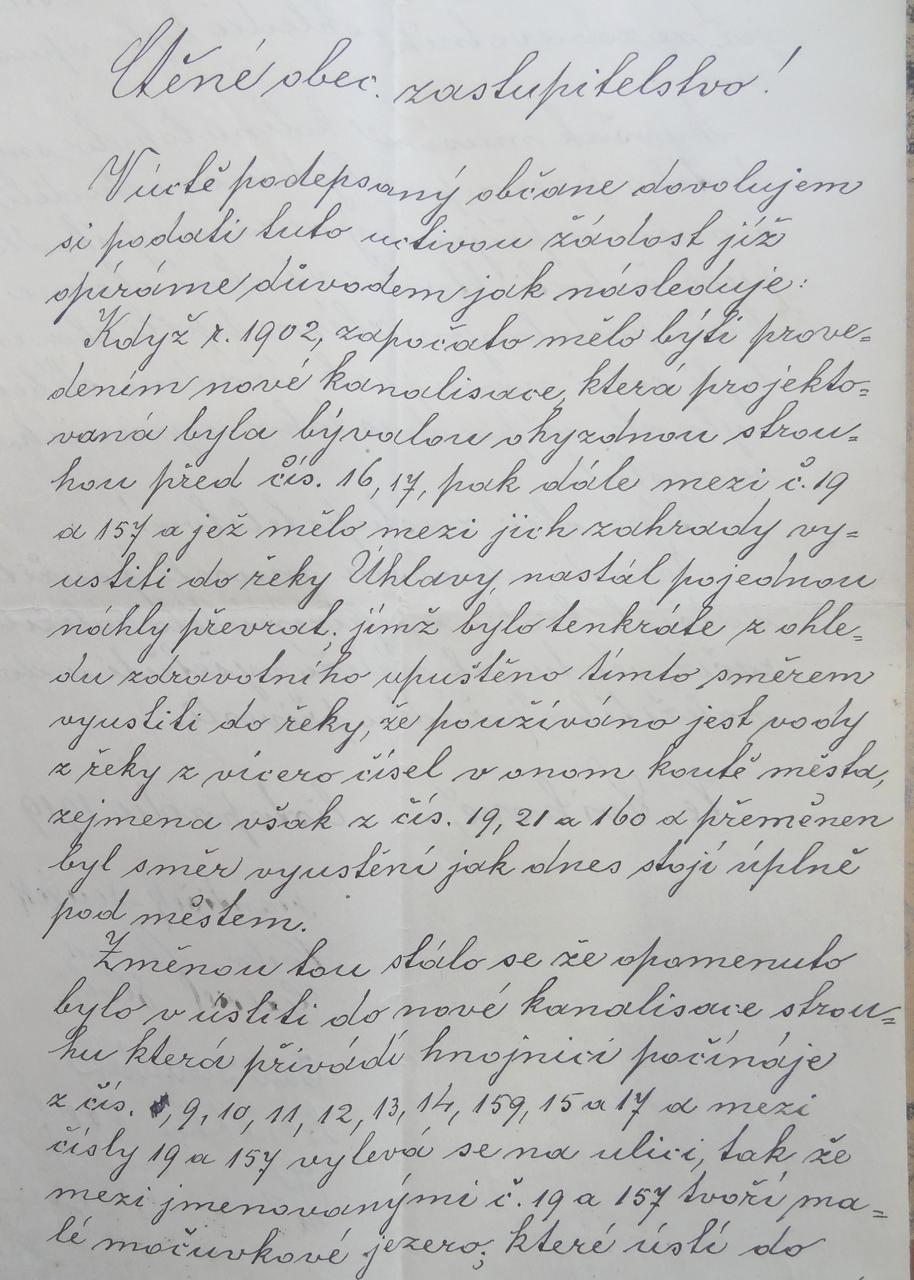 Ctěné obec. zastupitelstvo!
V úctě podepsaný občane dovolujem
si podati tuto uctivou žádost již
opíráme důvodem jak následuje:
Když r. 1902, započato mělo býti prove=
dením nové kanalisace, která projekto=
vaná byla bývalou ohyzdnou strou=
hou před čís. 16, 17, pak dále mezi č. 19
a 157 a jež mělo mezi jich zahrady vy=
ustiti do řeky Úhlavy, nastál pojednou
náhly převrat, jímž bylo tenkráte z ohle=
du zdravotního upuštěno tímto směrem
vyustiti do řeky, že používáno jest vody
z řeky z vícero čísel v onom koutě města,
zejmena však z čís. 19, 21 a 160 a přeměněn
byl směr vyustění jak dnes stojí úplně
pod městem.
Změnou tou stálo se že opomenuto
bylo v ústiti do nové kanalisace strou=
hu která přivádí hnojnici počínáje
z čís. , 9, 10, 11, 12, 13, 14, 159, 15 a 17 a mezi
čísly 19 a 157 vylevá se na ulici, tak že
mezi jmenovanými č. 19 a 157 tvoří ma=
lé močuvkové jezero; které ústí do